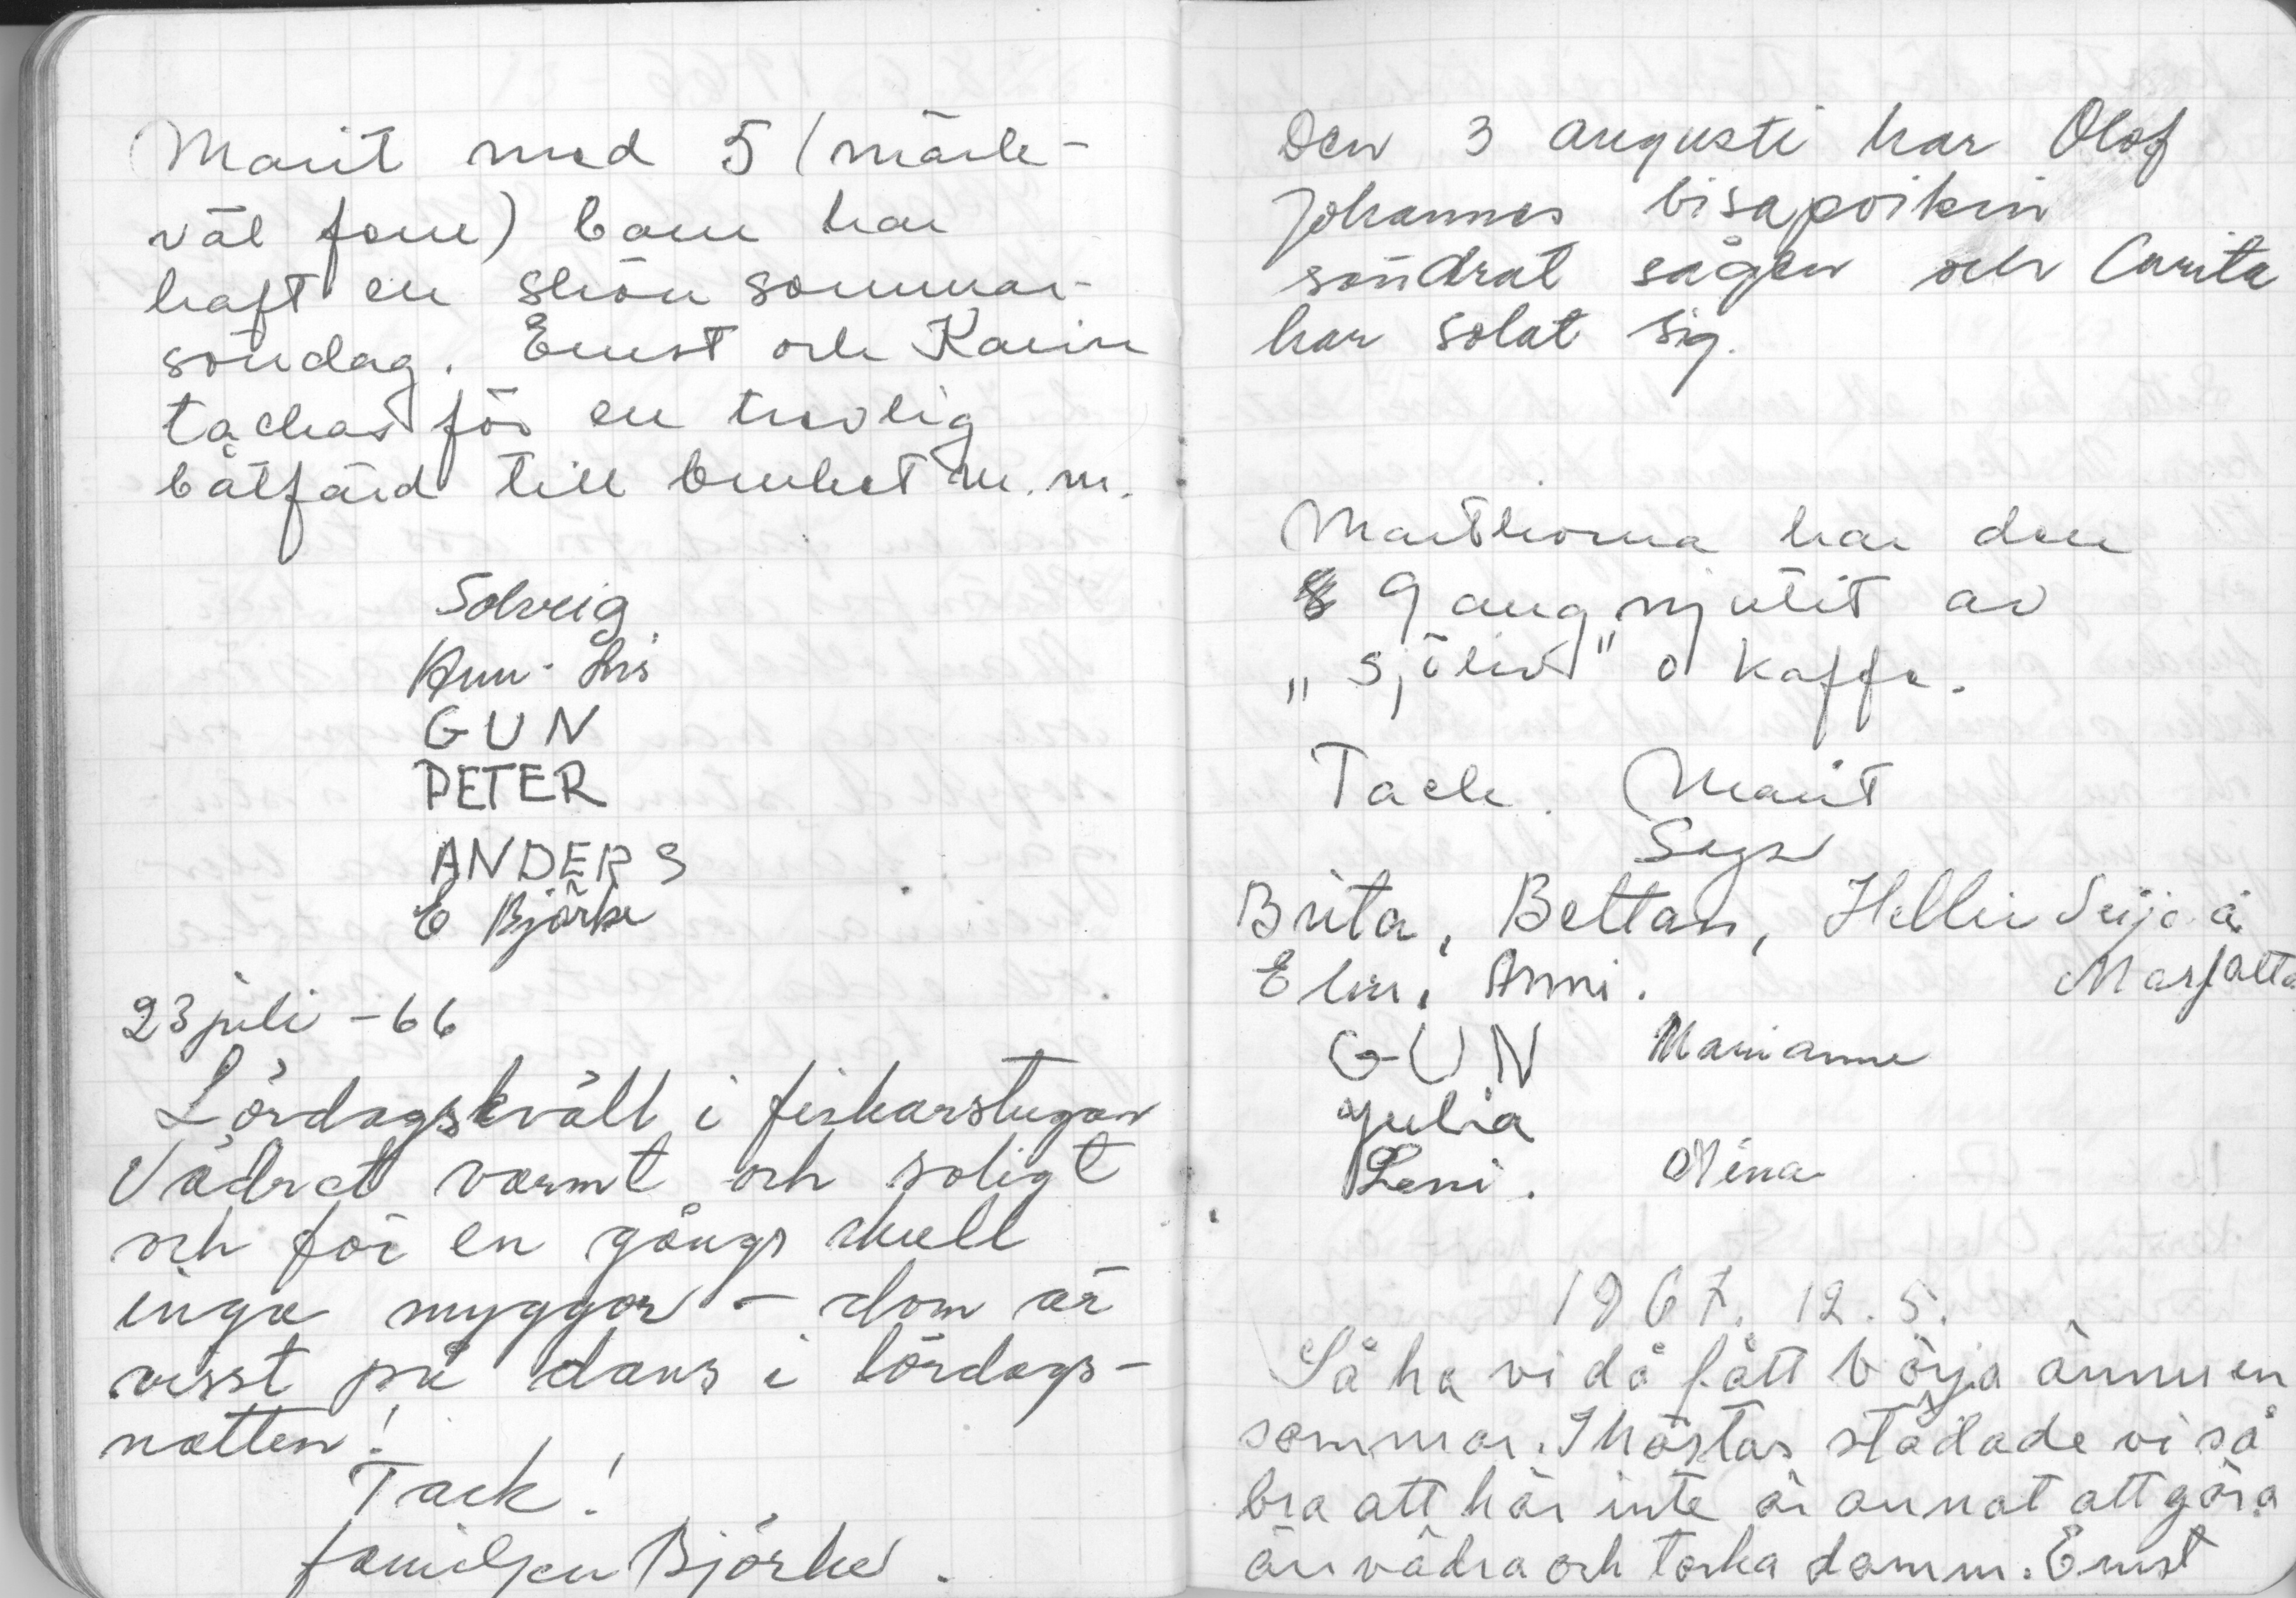 Marit med 5 (märk-
väl fem) barn har
haft en skön sommar-
söndag. Ernst och Karin
tackas för en trevlig
båtfärd till bruket m.m.
Solveig
Ann-Lis
GUN
PETER
ANDERS
E Björke
23 juli -66
Lördagskväll i fiskarstugan
Vädret varmt och soligt
och för en gångs skull
inga myggor - dom är
visst på dans i lördags-
natten!
Tack!
familjen Björke.
Den 3 augusti har Olof
Johannes bisapoikin
söndrat sågen och Carita
har solat sig.
Marthorna har den
9 aug njutit av
"sjöliv" o kaffe.
Tack. Marit
Brita, Bettan, Hellin Seija å
Elin, Anni. Marjatta
GUN Marianne
Julia
Leni. Nina
1967. 12.5.
Så ha vi då fått börja ännu en
sommar. I höstas städade vi så
bra att här inte är annat att göra
än vädra och torka damm. Ernst